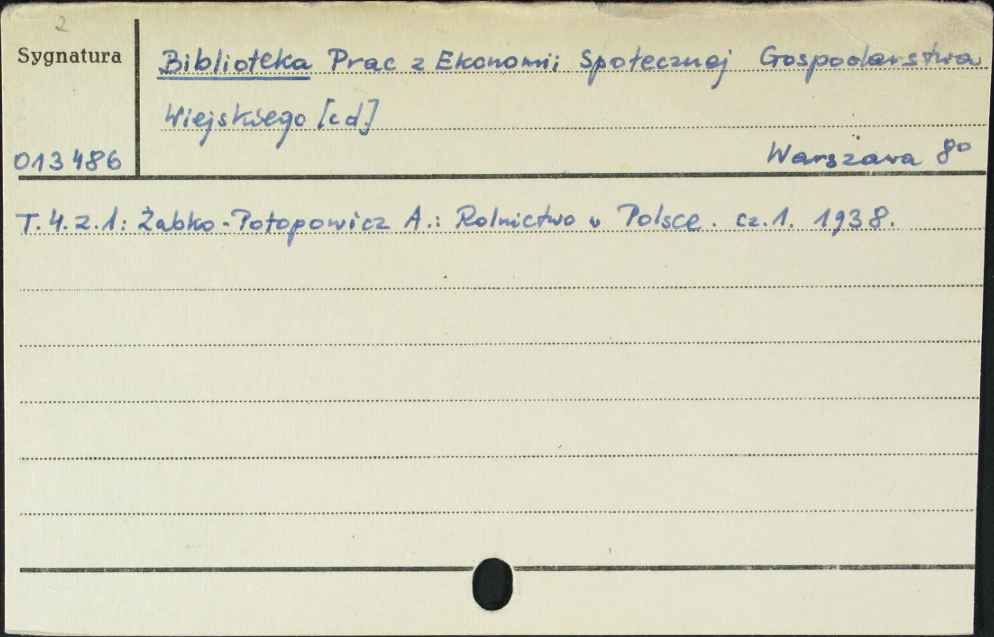 2
Sygnatura
Biblioteka Prac z Ekonomii Społecznej Gospodarstwa
Wiejskiego [cd.]
013486
Warszawa 8°
T.4.z.1: Żabko-Potopowicz A.: Rolnictwo w Polsce. cz.1. 1938.